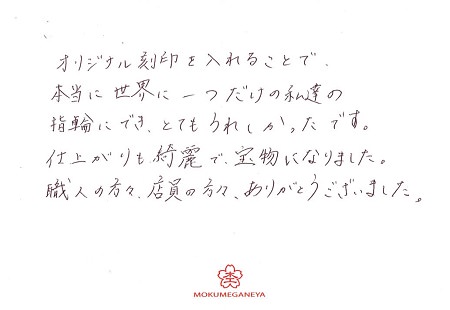 オリジナル刻印を入れることで、
本当に世界に一つだけの私達の
指輪にでき、とてもうれしかったです。
仕上がりも綺麗で、宝物になりました。
職人の方々、店員の方々、ありがとうございました。
MOKUMEGANEYA